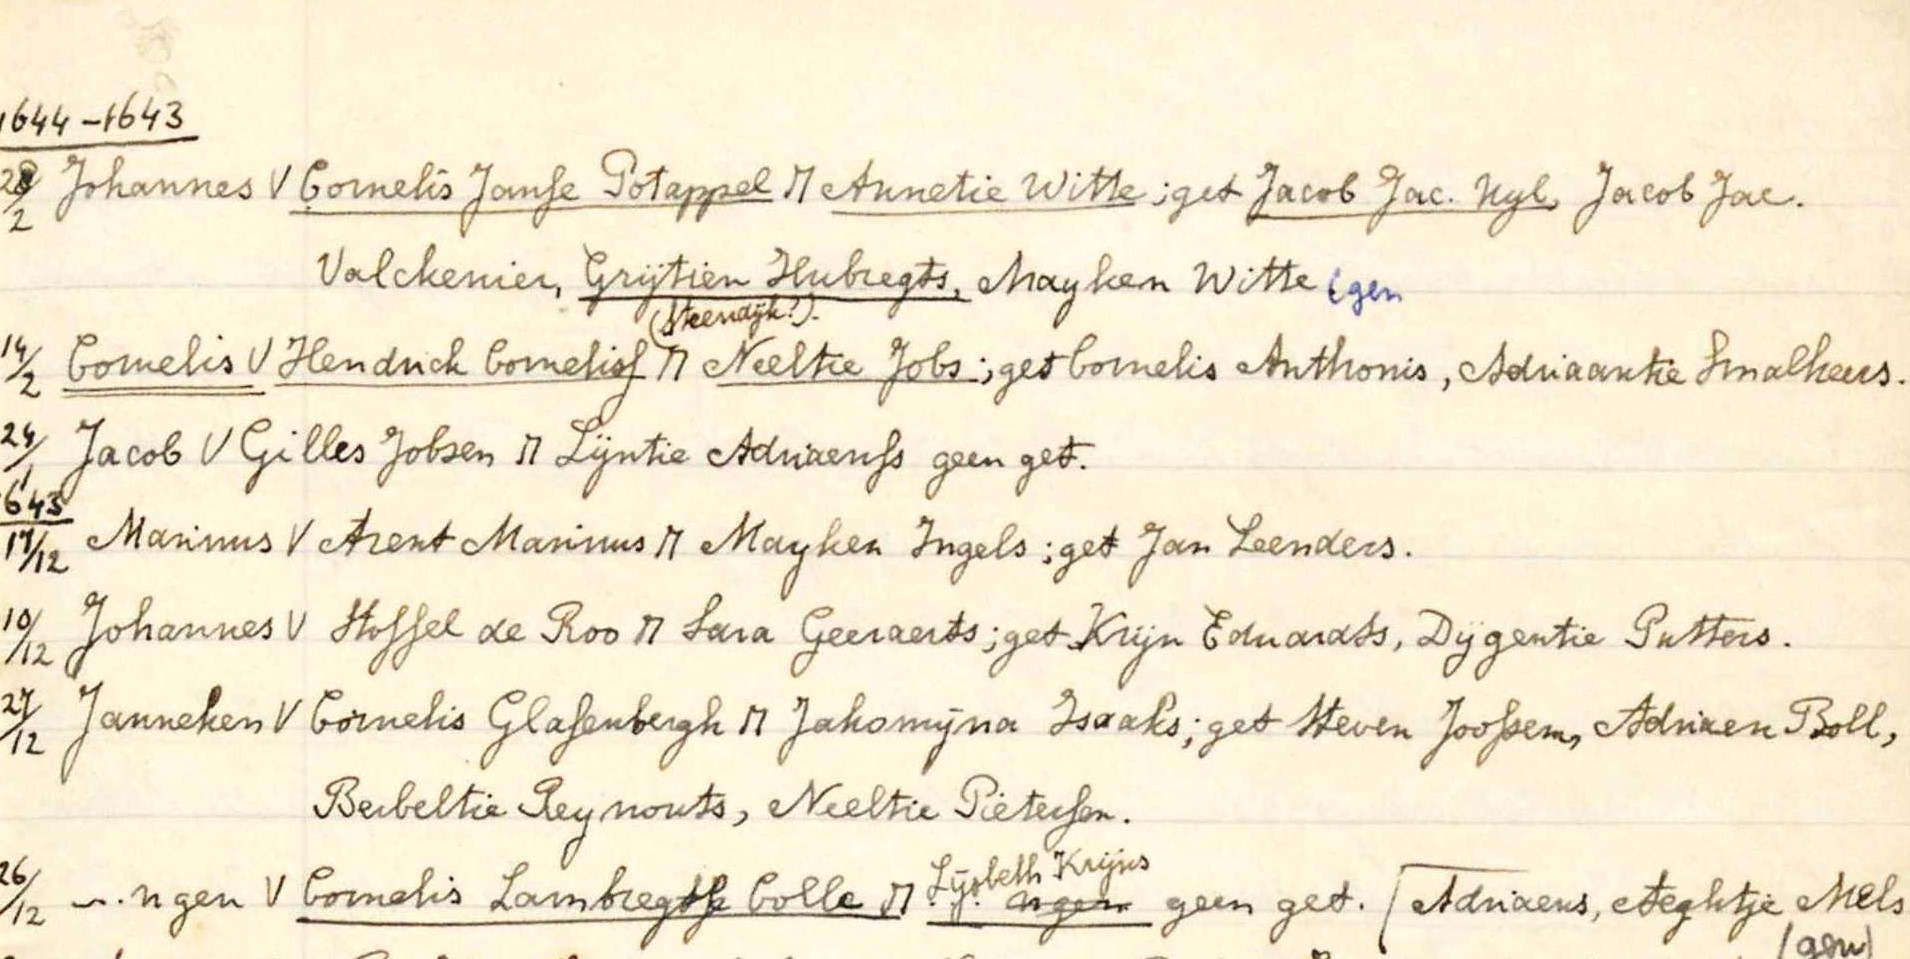 1644-1643
28/2 Johannes V Cornelis Janse Potappel M Annetie Witte ; get Jacob Jac. Nyl, Jacob Jac.
Valckenier, Grijtien Hubregts, Mayken Witte (gen
(Steendijk?).
14/2 Cornelis V Hendrick Cornelisf M Neeltie Jobs ; get Cornelis Anthonis, Adriaantie Smalheers.
24/1 Jacob V Gilles Jobsen M Lijntie Adriaenss geen get.
1643
17/12 Marinus V Arent Marinus M Mayken Ingels ; get Jan Leenders.
10/12 Johannes V Stoffel de Roo M Sara Geeraerts ; get Krijn Eduardts, Dijgentie Putters.
27/12 Janneken V Cornelis Glasenbergh M Jakomijna Isaaks ; get Steven Joossem, Adriaen Boll,
Berbeltie Reynouts, Neeltie Pietersen.
Lijsbeth Krijns
26/12 ~..ngen V Cornelis Lambregtss Colle M .ij. ngen geen get. [Adriaens, Aeghtje Mels
(gen)